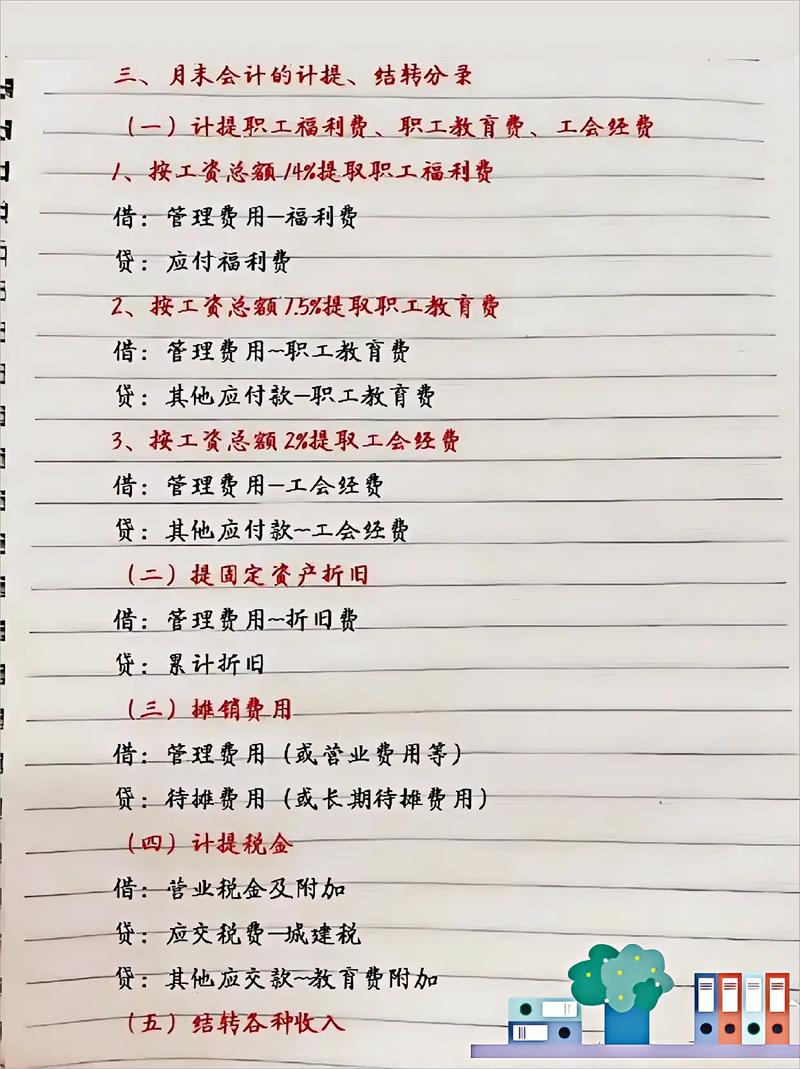 三、月末会计的计提、结转分录
（一）计提职工福利费、职工教育费、工会经费
1、按工资总额14%提取职工福利费
借：管理费用—福利费
贷：应付福利费
2、按工资总额1.5%提取职工教育费
借：管理费用~职工教育费
贷：其他应付款—职工教育费
3、按工资总额2%提取工会经费
借：管理费用—工会经费
贷：其他应付款~工会经费
（二）提固定资产折旧
借：管理费用~折旧费
贷：累计折旧
（三）摊销费用
借：管理费用（或营业费用等）
贷：待摊费用（或长期待摊费用）
（四）计提税金
借：营业税金及附加
贷：应交税费—城建税
贷：其他应交款~教育费附加
（五）结转各种收入